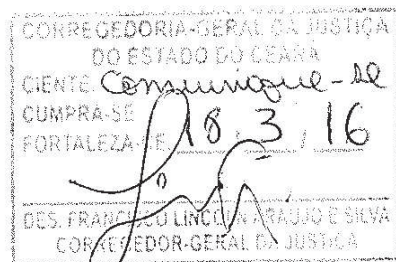 CORREGEDORIA-GERAL DA JUSTIÇA
DO ESTADO DO CEARÁ
CIENTE. Comunique-se
CUMPRA-SE
FORTALEZA-CE, 18 / 3 / 16
DES. FRANCISCO LINCOLN ARAÚJO E SILVA
CORREGEDOR-GERAL DA JUSTIÇA